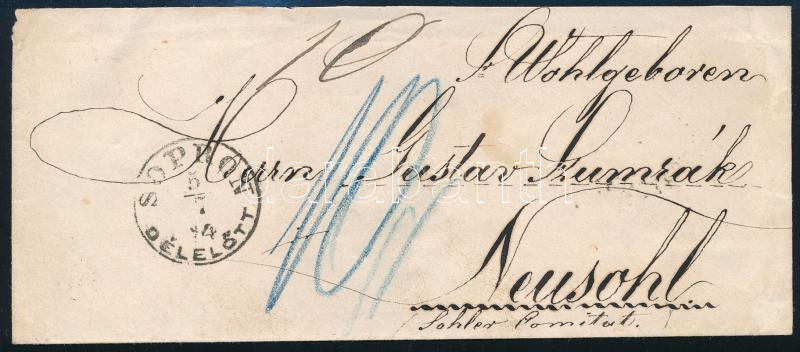 10
Sr Wohlgeboren
Herrn Gustav Szumrák
Neusohl
Sohler Comitat.
SOPRON
5/7
DÉLELŐTT
darabanth